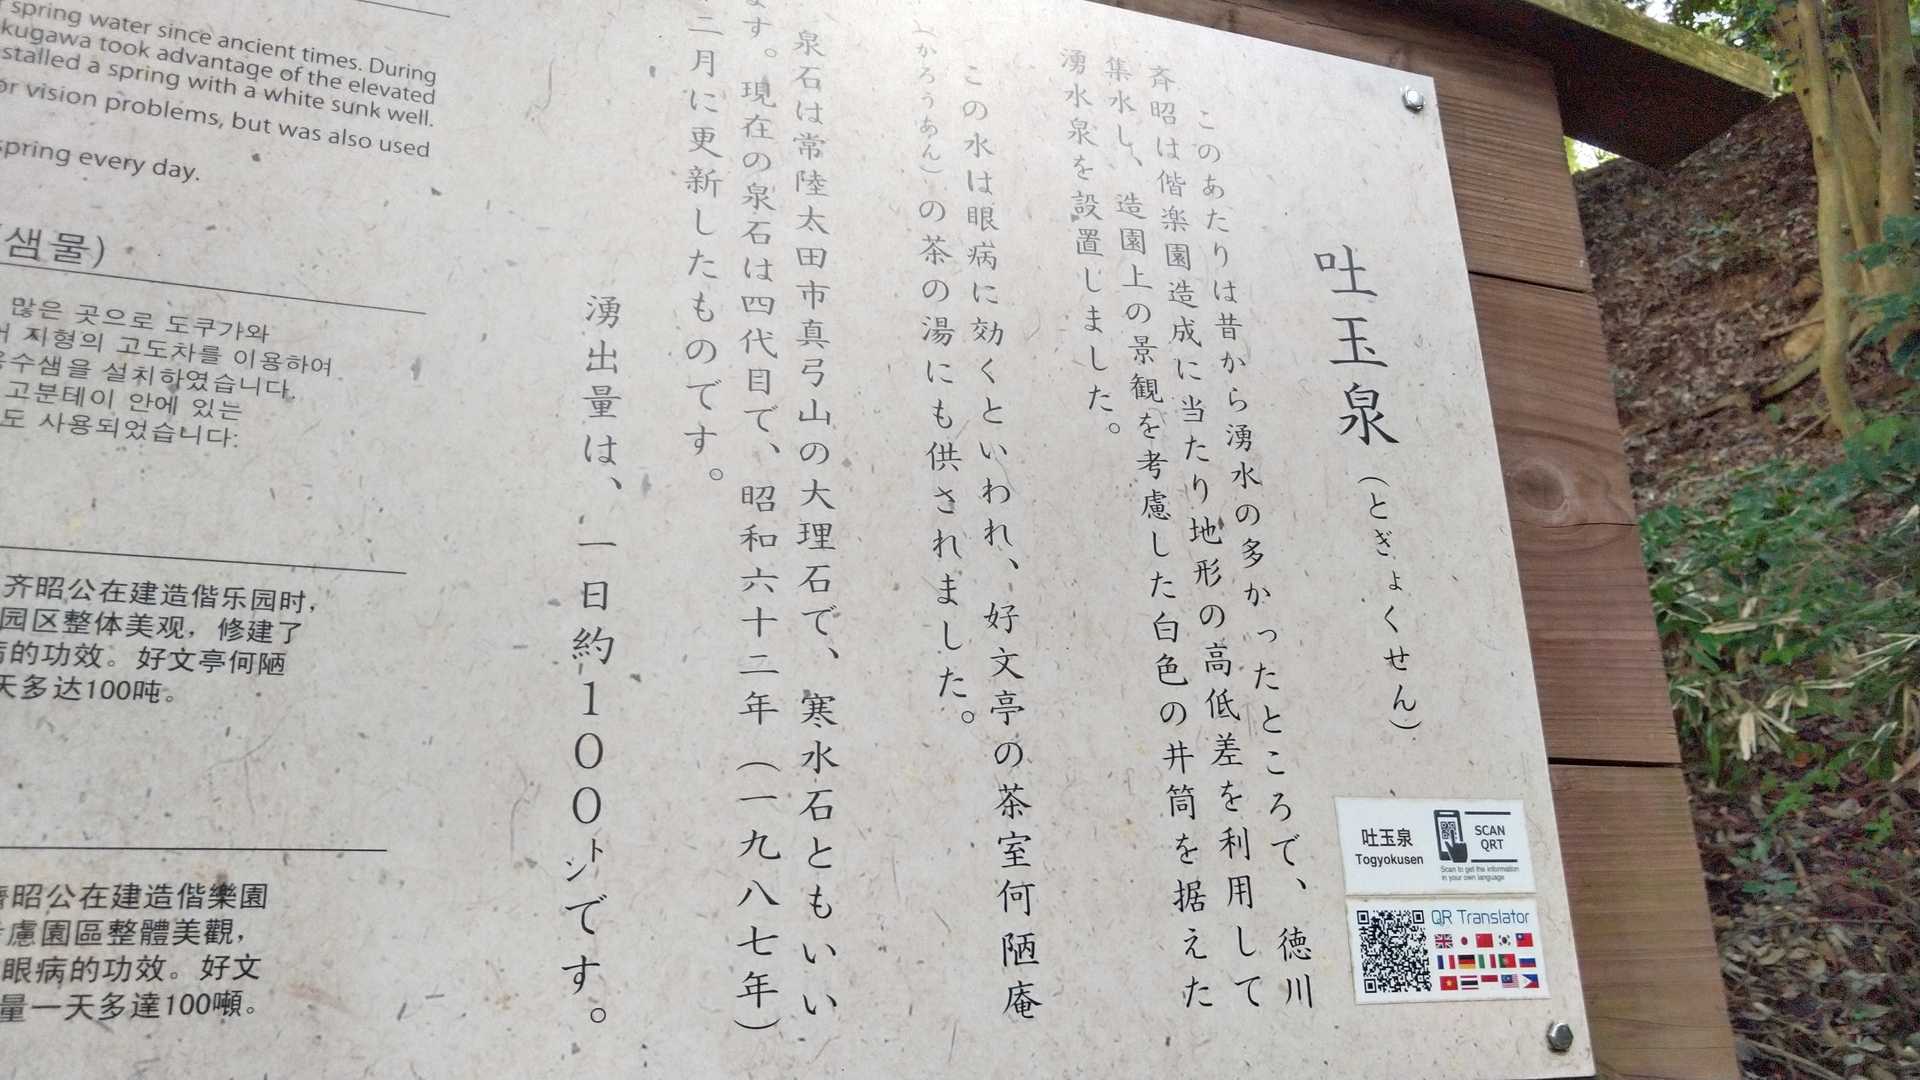 吐玉泉(とぎょくせん)
このあたりは昔から湧水の多かったところで、徳川
斉昭は偕楽園造成に当たり地形の高低差を利用して
集水し、造園上の景観を考慮した白色の井筒を据えた
湧水泉を設置しました。
この水は眼病に効くといわれ、好文亭の茶室何陋庵
(かろうあん)の茶の湯にも供されました。
泉石は常陸太田市真弓山の大理石で、寒水石ともいい
ます。現在の泉石は四代目で、昭和六十二年(一九八七年)
二月に更新したものです。
湧出量は、一日約100トンです。
spring water since ancient times. During
kugawa took advantage of the elevated
stalled a spring with a white sunk well.
or vision problems, but was also used
spring every day.
샘물)
많은 곳으로 도쿠가와
지형의 고도차를 이용하여
수샘을 설치하였습니다.
고분테이 안에 있는
도 사용되었습니다:
齐昭公在建造偕乐园时,
园区整体美观,修建了
的功效。好文亭何陋
天多达100吨。
齊昭公在建造偕樂園
慮園區整體美觀,
眼病的功效。好文
量一天多達100噸。
吐玉泉
Togyokusen
SCAN
QRT
Scan to get the information
in your own language
QR Translator